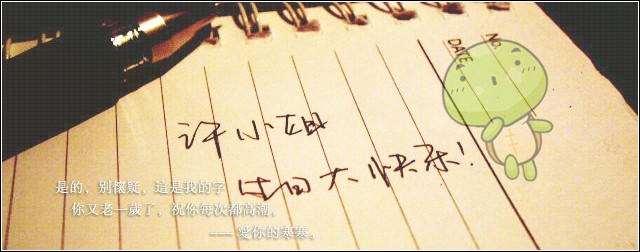 No.
DATE
许小姐
生日大快乐!
是的，別懷疑，這是我的字
你又老一歲了，祝你每次都高潮，
--- 愛你的寒寒。